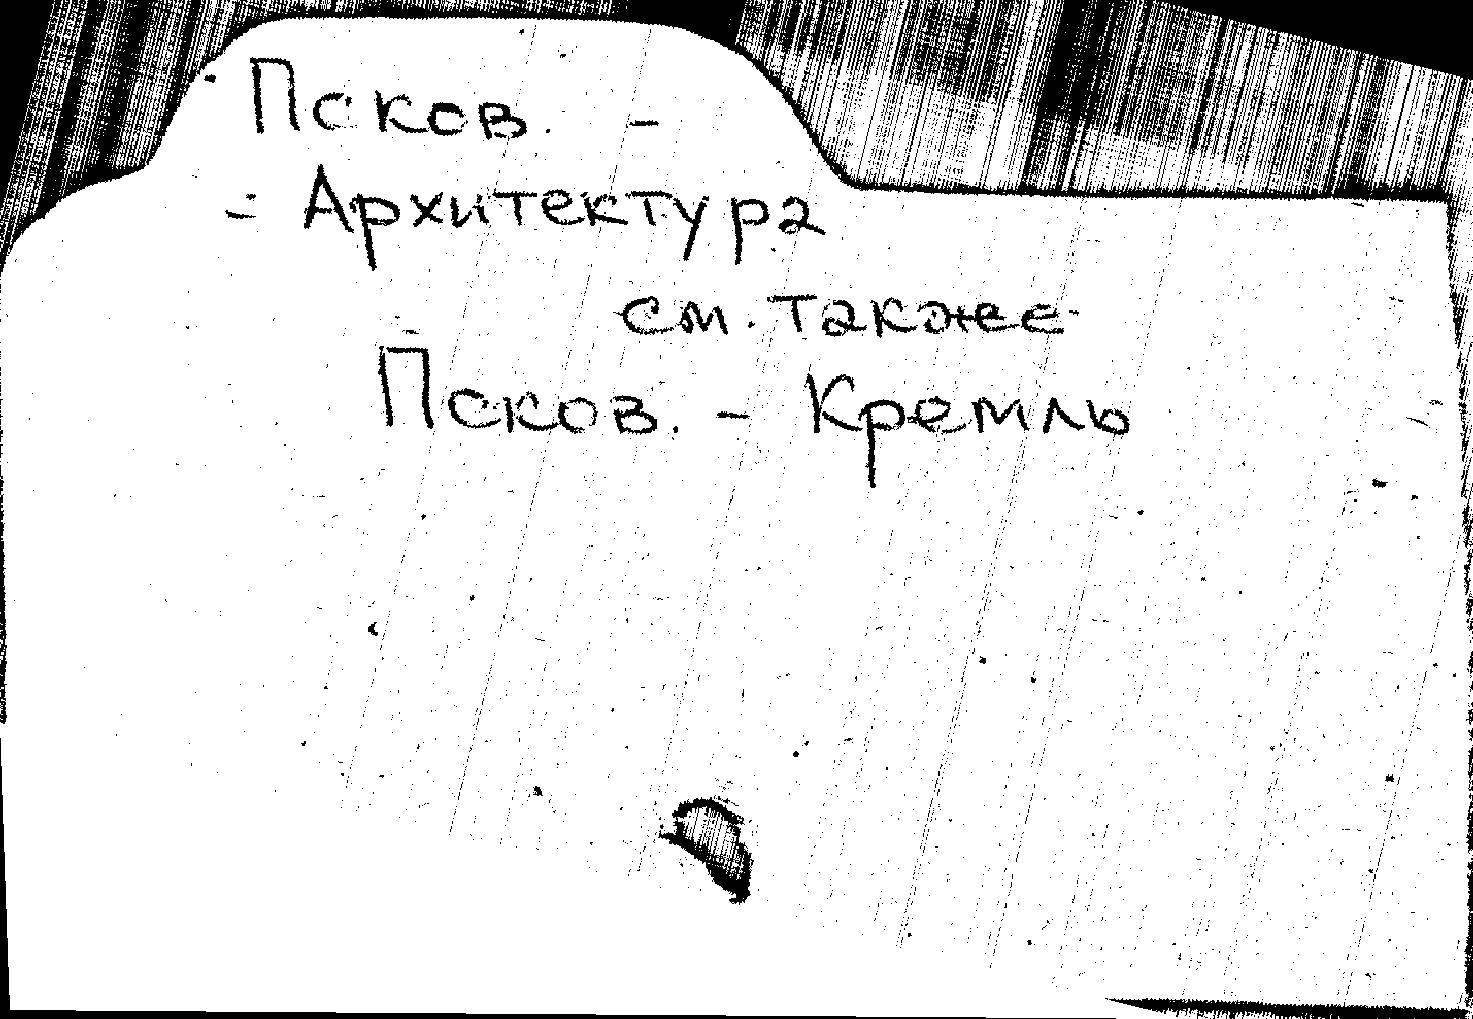 Псков. -
- Архитектура
см. также
Псков. - Кремль